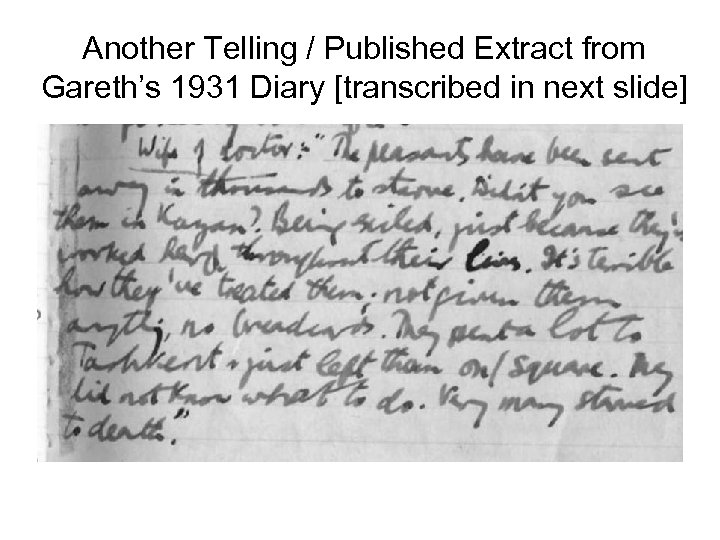 Another Telling / Published Extract from
Gareth’s 1931 Diary [transcribed in next slide]
Wife of doctor: "The peasants have been sent
away in thousands to starve. Didn't you see
them in Kazan? Being exiled, just because they've
worked hard throughout their lives. It's terrible
how they've treated them; not given them
anything, no breadcards. They sent a lot to
Tashkent & just left them on / square. They
did not know what to do. Very many starved
to death."